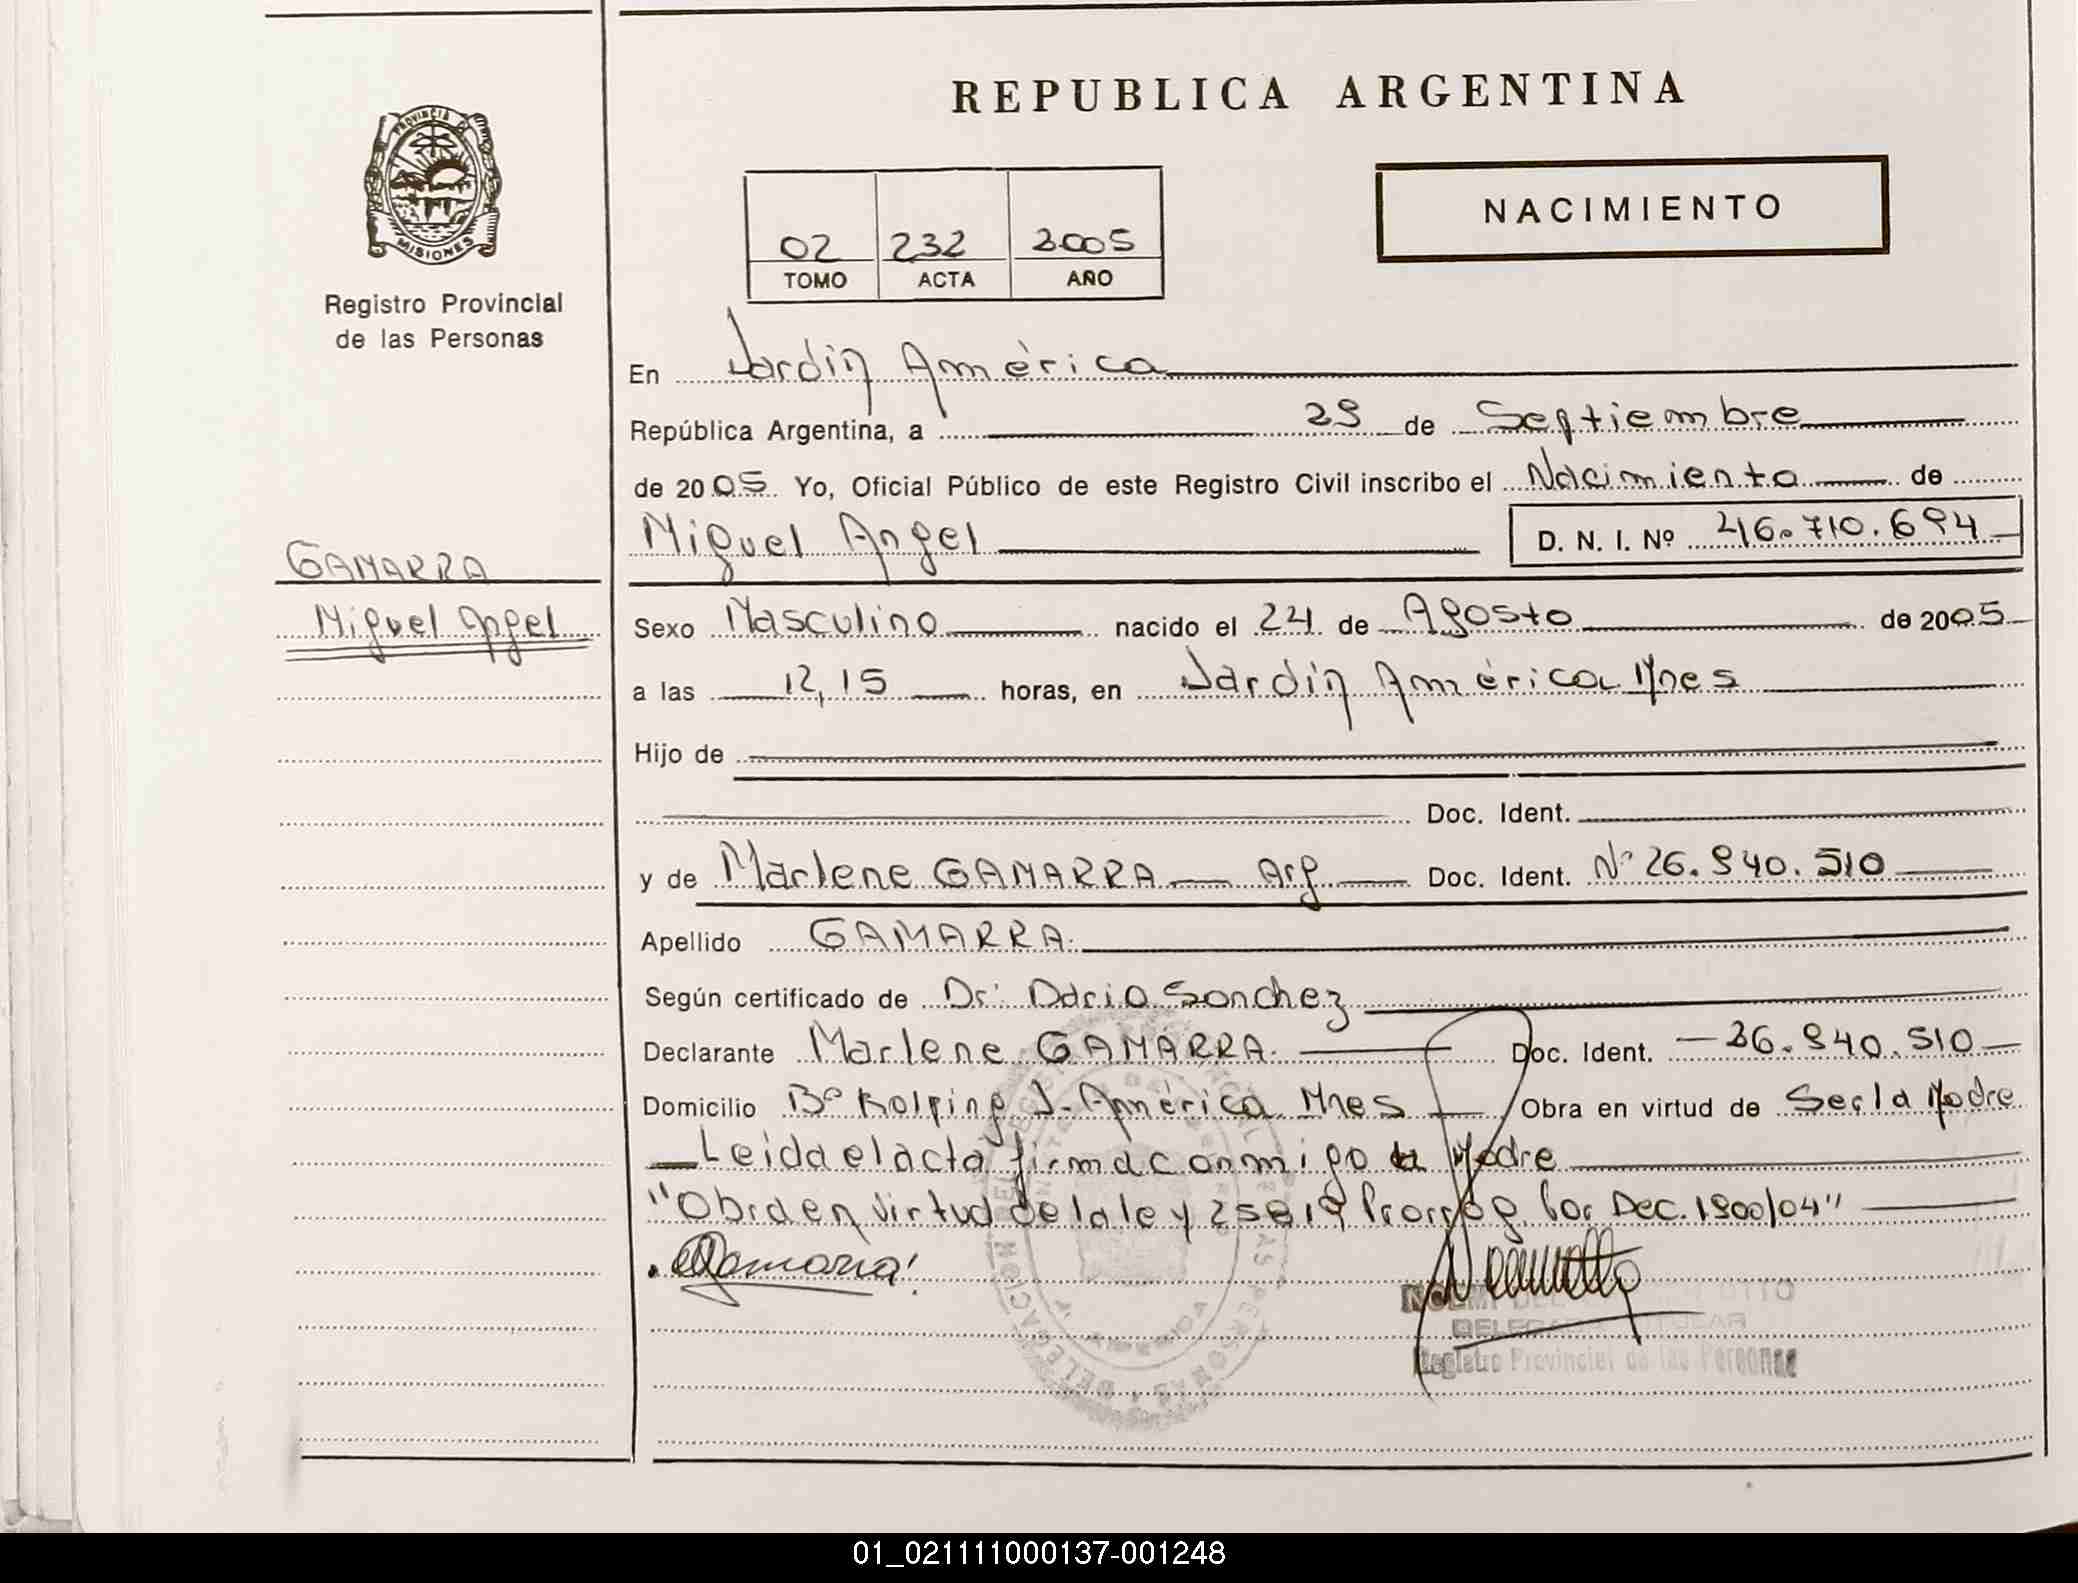 REPUBLICA ARGENTINA
PROVINCIA DE
MISIONES
Registro Provincial
de las Personas
NACIMIENTO
02 232 2005
TOMO ACTA AÑO
En Jardín América
República Argentina, a 29 de Septiembre
de 2005 Yo, Oficial Público de este Registro Civil inscribo el Nacimiento de
Miguel Angel D. N. I. Nº 46.710.694
GAMARRA
Miguel Angel
Sexo Masculino nacido el 24 de Agosto de 2005
a las 12,15 horas, en Jardín América Mnes
Hijo de
Doc. Ident.
y de Marlene GAMARRA Arg Doc. Ident. Nº 26.940.510
Apellido GAMARRA
Según certificado de Dr: Dario Sanchez
Declarante Marlene GAMARRA Doc. Ident. 26.940.510
Domicilio Bº Kolping J. América Mnes Obra en virtud de Ser la Madre
Leida el acta firma conmigo la Madre
"Obra en virtud de la ley 25819 Prorrog por Dec. 1900/04"
Gamarra
DELEGADA TITULAR
Registro Provincial de las Personas
01_021111000137-001248